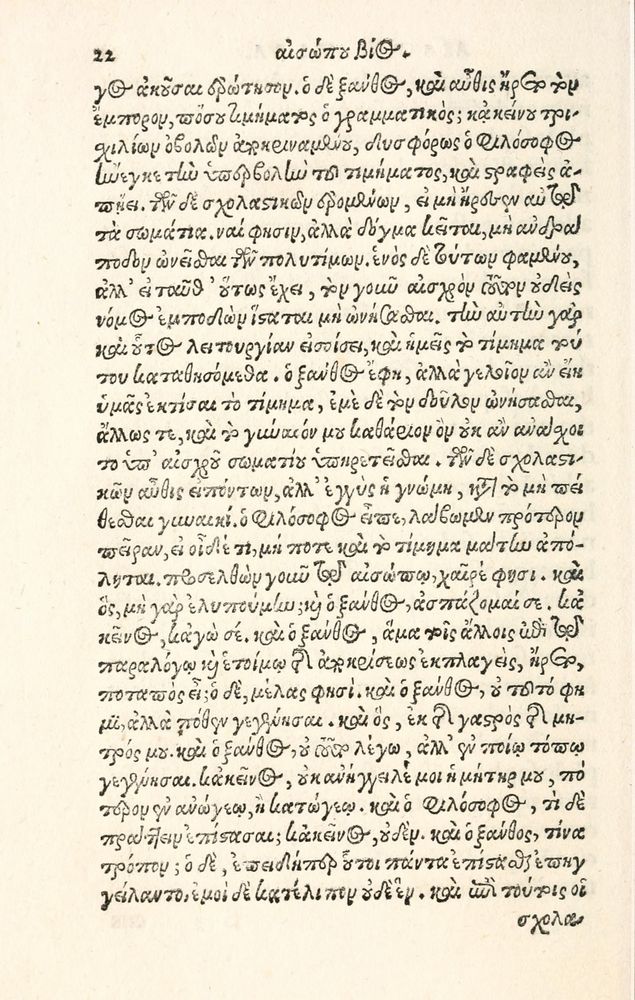 22 αἰσώπου βίος.
γος ἀκοῦσαι ἐρώτησον. ὁ δὲ ξάνθος, καὶ αὖθις ἤρετο τὸν
ἔμπορον, πόσου τιμήματος ὁ γραμματικός; κἀκείνου τρι-
χιλίων ὀβολῶν ἀποκριναμένου, δυσφόρως ὁ φιλόσοφος
ἤνεγκε τὴν ὑπερβολὴν τοῦ τιμήματος, καὶ στραφεὶς ἀ-
πῄει. τῶν δὲ σχολαστικῶν ἐρομένων, εἰ μὴ ἤρεσεν αὐτῷ
τὰ σωμάτια. ναί φησιν, ἀλλὰ δόγμα κεῖται, μὴ ἀνδρα
ποδον ὠνεῖσθαι τῶν πολυτίμων. ἑνὸς δὲ τούτων φαμένου,
ἀλλ' εἰ ταῦθ' οὕτως ἔχει, τὸν γοῦν αἰσχρὸν τοῦτον οὐδεὶς
νόμος ἐμποδὼν ἵσταται μὴ ὠνήσασθαι. τὴν αὐτὴν γὰρ
καὶ οὗτος λειτουργίαν εἰσοίσει, καὶ ἡμεῖς τὸ τίμημα τού
του καταθησόμεθα. ὁ ξάνθος ἔφη, ἀλλὰ γελοῖον ἂν εἴη
ὑμᾶς ἐκτίσαι τὸ τίμημα, ἐμὲ δὲ τὸν δοῦλον ὠνήσασθαι,
ἄλλως τε, καὶ τὸ γύναιόν μου καθάριον ὂν οὐκ ἂν ἀνάσχοι
το ὑπ' αἰσχροῦ σωματίου ὑπηρετεῖσθαι. τῶν δὲ σχολαστι-
κῶν αὖθις εἰπόντων, ἀλλ' ἐγγὺς ἡ γνώμη, κατὰ τὸ μὴ πεί
θεσθαι γυναικί. ὁ φιλόσοφος εἶπε, λάβωμεν πρότερον
πεῖραν, εἰ οἶδέ τι, μή ποτε καὶ τὸ τίμημα μάτην ἀπό-
ληται. προσελθὼν γοῦν τῷ αἰσώπῳ, χαῖρέ φησι. καὶ
ὃς, μὴ γὰρ ἐλυπούμην; καὶ ὁ ξάνθος, ἀσπάζομαί σε. κἀ
κεῖνος, κἀγὼ σέ. καὶ ὁ ξάνθος, ἅμα τοῖς ἄλλοις ἐπὶ τῷ
παραλόγῳ καὶ ἑτοίμῳ τῆς ἀποκρίσεως ἐκπλαγεὶς, ἤρετο,
ποταπὸς εἶ; ὁ δὲ, μέλας φησί. καὶ ὁ ξάνθος, οὐ τοῦτό φη
μι, ἀλλὰ πόθεν γεγέννησαι. καὶ ὃς, ἐκ τῆς γαστρὸς τῆς μη-
τρός μου. καὶ ὁ ξάνθος, οὐ τοῦτο λέγω, ἀλλ' ἐν ποίῳ τόπῳ
γεγέννησαι. κἀκεῖνος, οὐκ ἀνήγγειλέ μοι ἡ μήτηρ μου, πό
τερον ἐν ἀνώγεῳ, ἢ κατώγεῳ. καὶ ὁ φιλόσοφος, τί δὲ
πράττειν ἐπίστασαι; κἀκεῖνος, οὐδέν. καὶ ὁ ξάνθος, τίνα
τρόπον; ὁ δὲ, ἐπειδήπερ οὗτοι πάντα ἐπίστασθαι ἐπηγ
γείλαντο, ἐμοὶ δὲ κατέλιπον οὐδὲ ἕν. καὶ ἐπὶ τούτοις οἱ
σχολα-